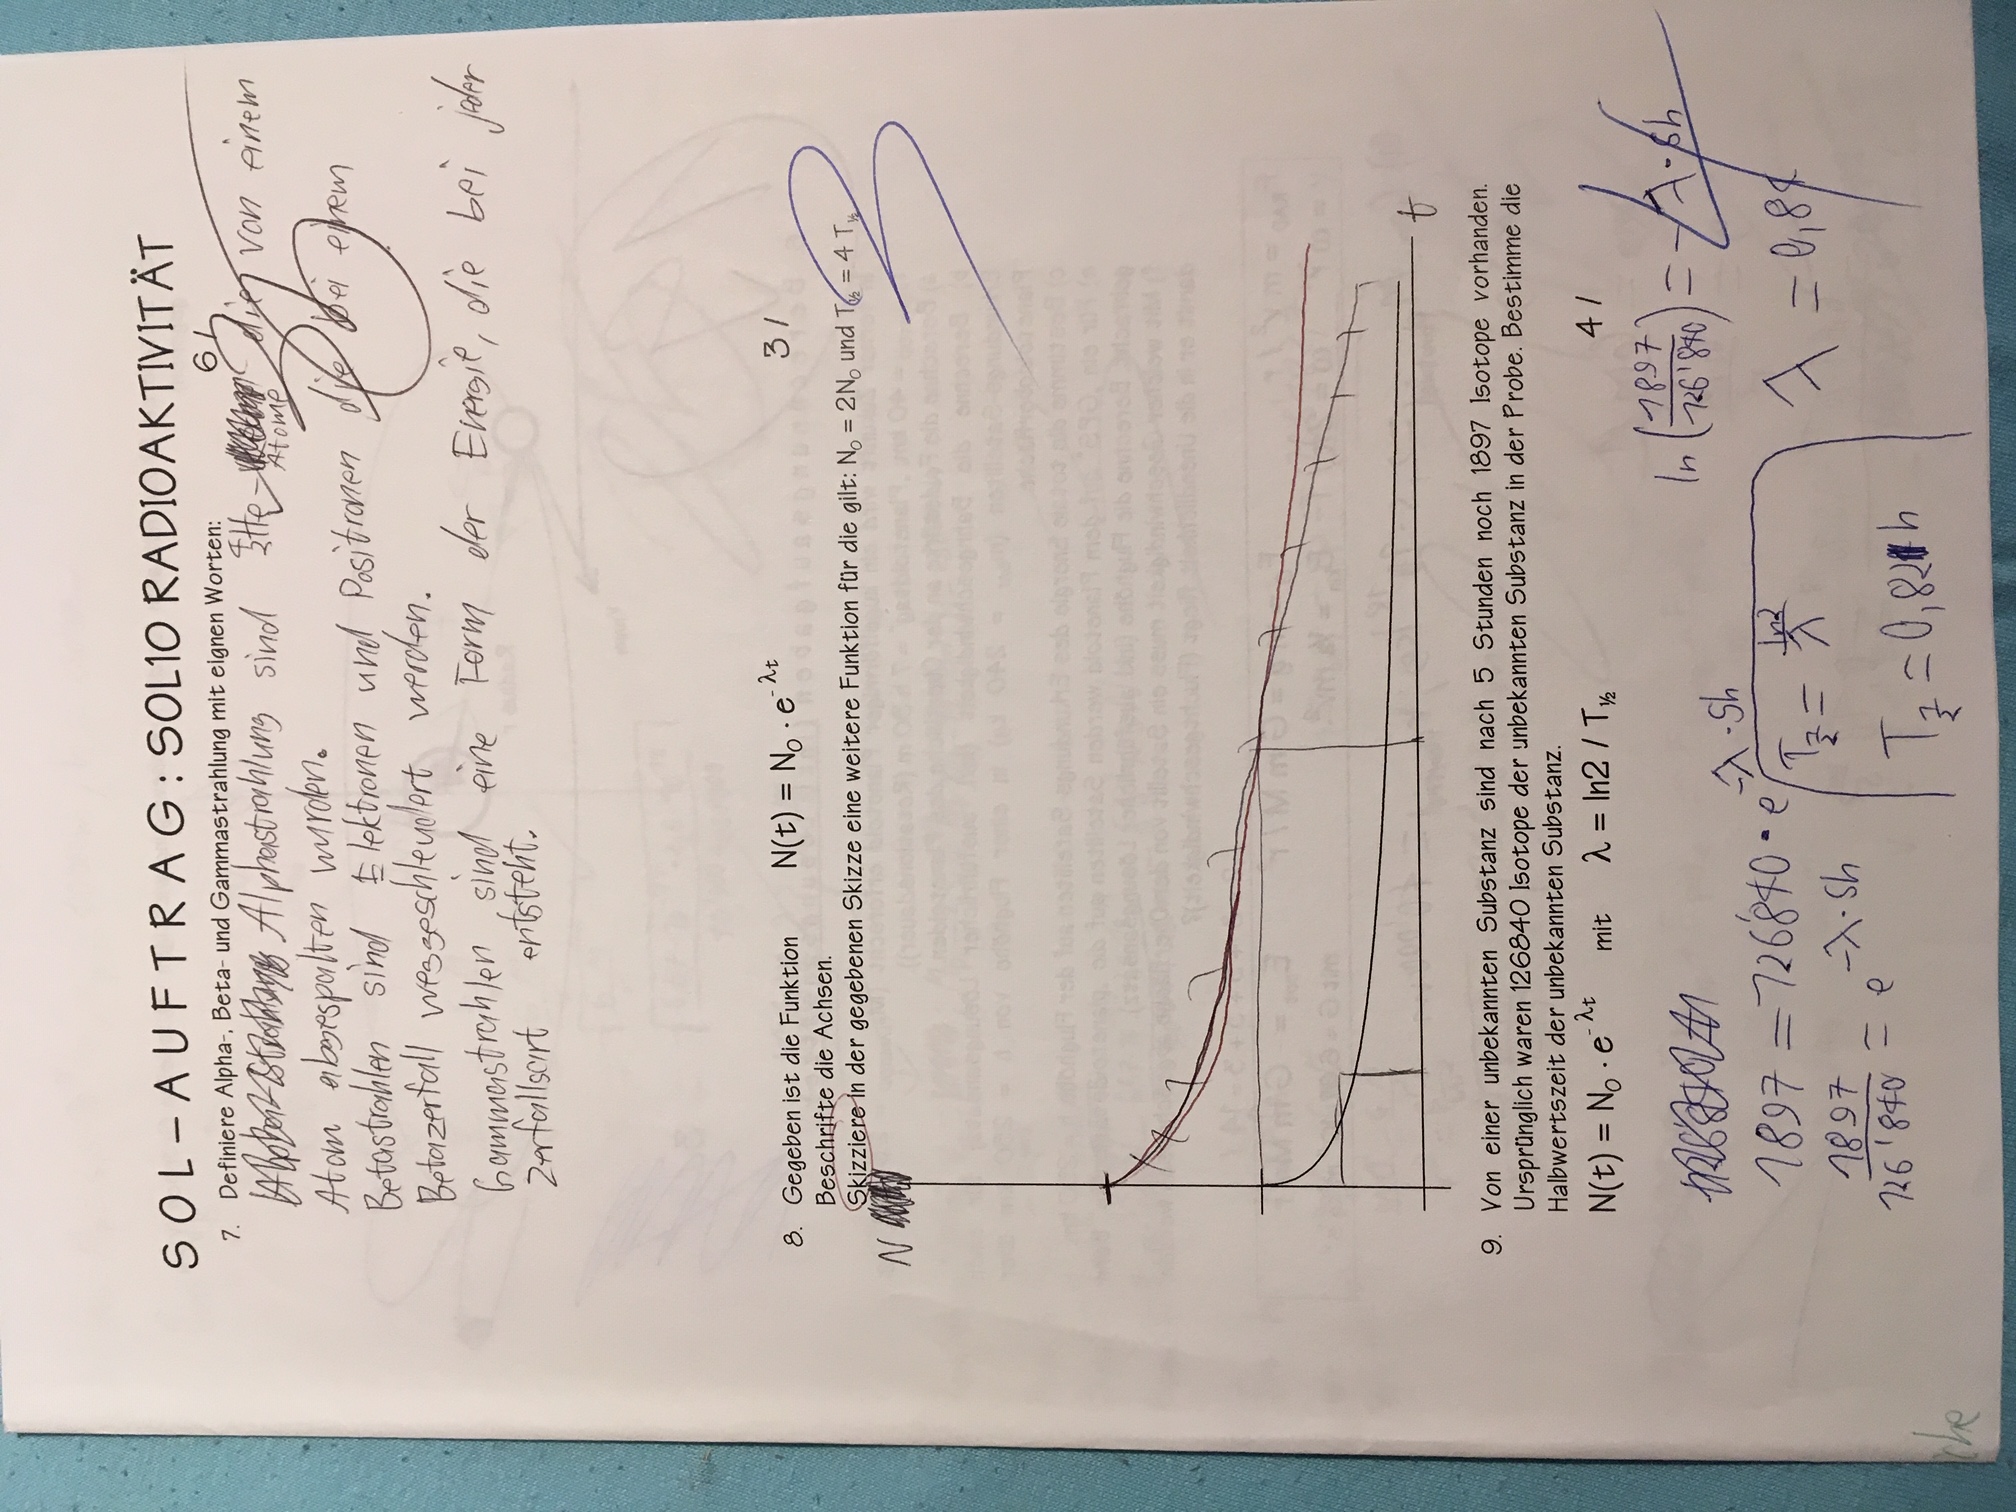 SOL-AUFTRAG: SOL10 RADIOAKTIVITÄT
7. Definiere Alpha-, Beta- und Gammastrahlung mit eignen Worten: 6 /
Alphastrahlung sind ⁴₂He - Atome die von einem
Atom abgespalten wurden.
Betastrahlen sind Elektronen und Positronen die bei einem
Betazerfall weggeschleudert werden.
Gammastrahlen sind eine Form der Energie, die bei jeder
Zerfallsart entsteht.
8. Gegeben ist die Funktion N(t) = N₀ · e^-λt 3 /
Beschrifte die Achsen.
Skizziere in der gegebenen Skizze eine weitere Funktion für die gilt: N₀ = 2N₀ und T½ = 4 T½
N
t
9. Von einer unbekannten Substanz sind nach 5 Stunden noch 1897 Isotope vorhanden.
Ursprünglich waren 126840 Isotope der unbekannten Substanz in der Probe. Bestimme die
Halbwertszeit der unbekannten Substanz.
N(t) = N₀ · e^-λt mit λ = ln2 / T½ 4 /
1897 = 126'840 · e^-λ·5h
1897/126'840 = e^-λ·5h
T½ = ln2/λ
T½ = 0,82 h
ln (1897/126'840) = -λ · 5h
λ = 0,84